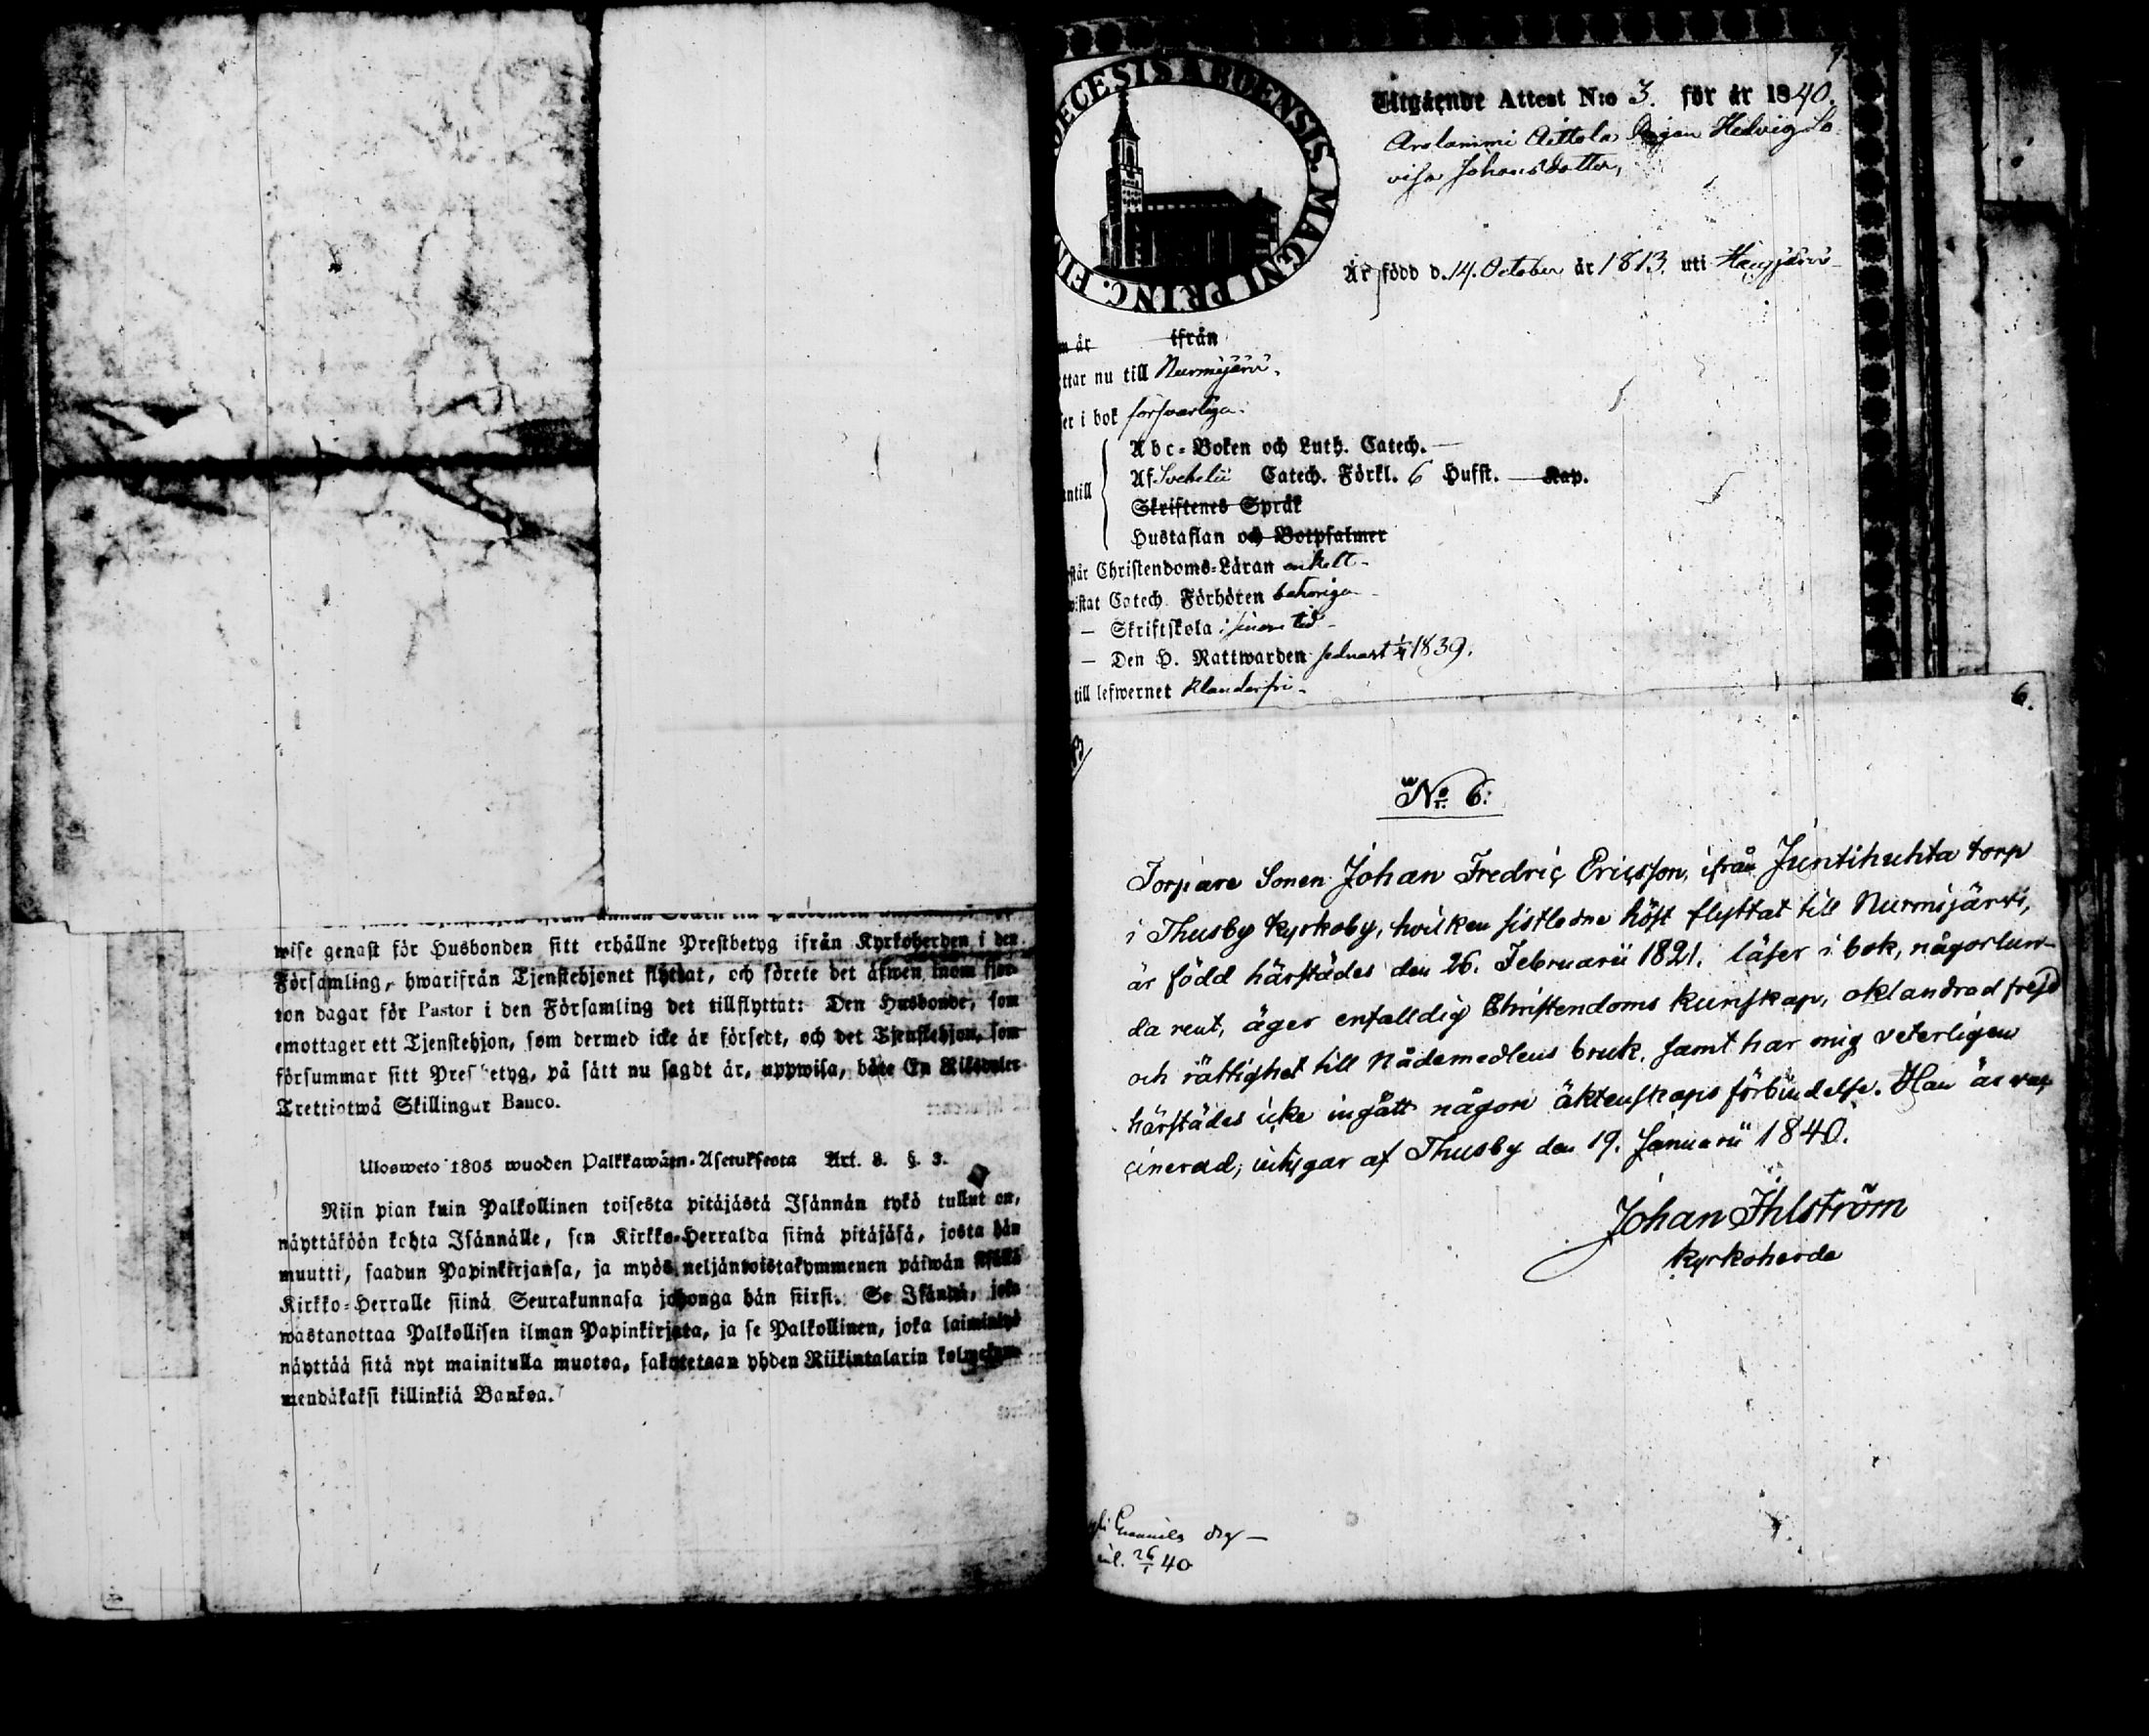 wise genast för Husbonden sitt erhållne Prestbetyg ifrån Kyrkoherden i den
Församling, hwarifrån Tjenstehjonet flyttat, och förete det äfwen inom fjor-
ton dagar för Pastor i den Församling det tillflyttat: Den Husbonde, som
emottager ett Tjenstehjon, som dermed icke är försedt, och det Tjenstehjon, som
försummar sitt Prestbetyg, på sätt nu sagdt är, uppwisa, böte En Riksdaler
Trettiotwå Skillingar Banco.
Ulosweto 1805 wuoden Palkkawäen-Asetuksesta Art. 8. §. 3.
Niin pian kuin Palkollinen toisesta pitäjästä Isännän tykö tullut on,
näyttäköön kohta Isännälle, sen Kirkko-Herralda siinä pitäjäsä, josta hän
muutti, saadun Papinkirjansa, ja myös neljäntoistakymmenen päiwän sisällä
Kirkko-Herralle siinä Seurakunnasa johonga hän siirsi. Se Isändä, joka
wastanottaa Palkollisen ilman Papinkirjata, ja se Palkollinen, joka laiminlyö
näyttää sitä nyt mainitulla muotoa, sakotetaan yhden Riikintalarin kolmekym-
mendäkaksi killinkiä Bankoa.
DIOECESIS ABOENSIS. MAGNI PRINC. FIN
Utgående Attest N:o 3. för år 1840.
Arolammi Aittola Pigan Hedvig Lo-
visa Johansdotter,
Är född d. 14. October år 1813. uti Hausjärvi
m år ifrån
ttar nu till Nurmijärvi.
er i bok försvarliga.
Abc-Boken och Luth. Catech. —
Af Svebelii Catech. Förkl. 6 Hufst. — Kap.
ntill
Skriftenes Språk
Hustaflan och Botpsalmer
står Christendoms-Läran enkelt
wistat Catech. Förhören behöriga
— Skriftskola i sinom tid
— Den H. Nattwarden sednast 1839.
till lefwernet klanderfri
6.
No 6:
Torpare Sonen Johan Fredric Ericsson, ifrån Juntihuhta torp
i Thusby kyrkoby, hvilken sistledne höst flyttat till Nurmijärvi,
är född härstädes den 26. Februarii 1821. läser i bok, någorlun-
da rent, äger enfalldig Christendoms kunskap, oklandrad frejd
och rättighet till Nådemedlens bruk, samt har mig veterligen
härstädes icke ingått någon äktenskaps förbindelse. Han är vac-
cinerad; intygar af Thusby den 19. Januarii 1840.
Johan Ihlström
kyrkoherde
26 40